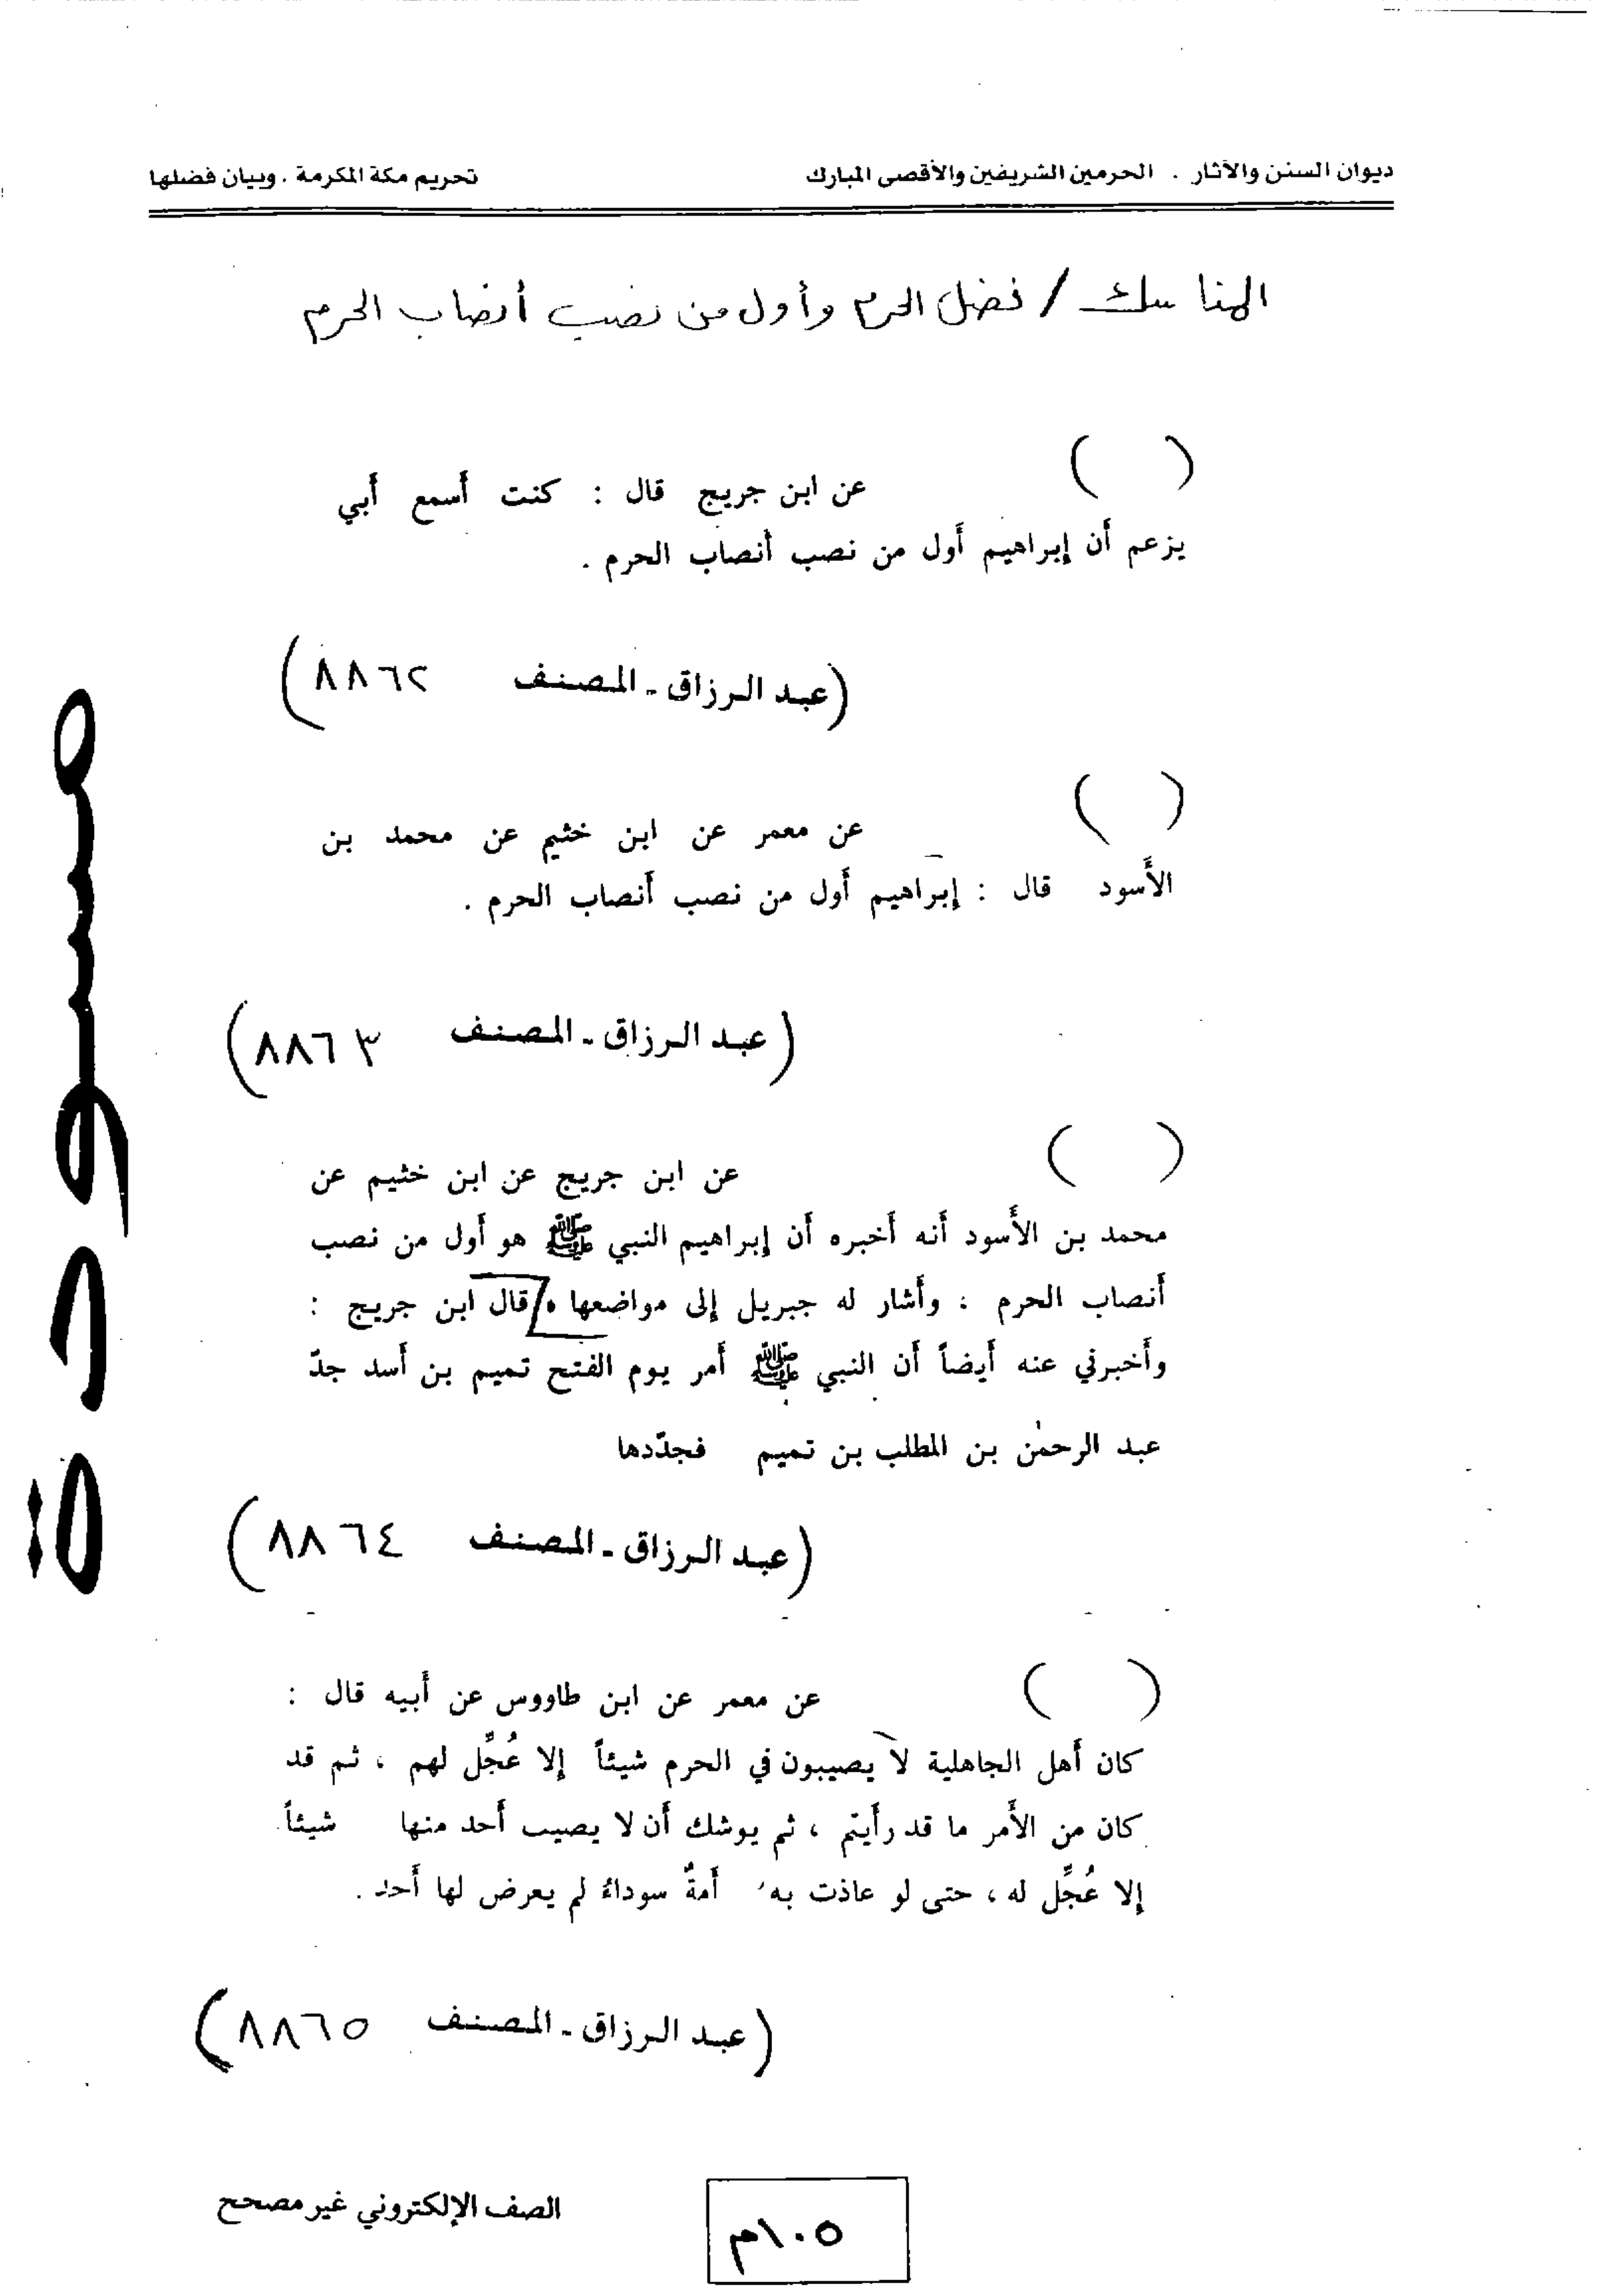 ديوان السنن والآثار . الحرمين الشريفين والأقصى المبارك
تحريم مكة المكرمة . وبيان فضلها
المناسك / فضل الحرم وأول من نصب أنصاب الحرم
( ) عن ابن جريج قال : كنت أسمع أبي
يزعم أن إبراهيم أول من نصب أنصاب الحرم .
(عبد الرزاق - المصنف ٨٨٦٢)
( ) عن معمر عن ابن خثيم عن محمد بن
الأسود قال : إبراهيم أول من نصب أنصاب الحرم .
(عبد الرزاق - المصنف ٨٨٦٣)
( ) عن ابن جريج عن ابن خثيم عن
محمد بن الأسود أنه أخبره أن إبراهيم النبي ﷺ هو أول من نصب
أنصاب الحرم : وأشار له جبريل إلى مواضعها . قال ابن جريج :
وأخبرني عنه أيضاً أن النبي ﷺ أمر يوم الفتح تميم بن أسد جدّ
عبد الرحمٰن بن المطلب بن تميم فجدّدها
(عبد الرزاق - المصنف ٨٨٦٤)
( ) عن معمر عن ابن طاووس عن أبيه قال :
كان أهل الجاهلية لا يصيبون في الحرم شيئاً إلا عُجِّل لهم ، ثم قد
كان من الأمر ما قد رأيتم ، ثم يوشك أن لا يصيب أحد منها شيئاً
إلا عُجِّل له ، حتى لو عاذت به أمةٌ سوداءُ لم يعرض لها أحد .
(عبد الرزاق - المصنف ٨٨٦٥)
مسودة
الصف الإلكتروني غير مصحح
١٠٥م